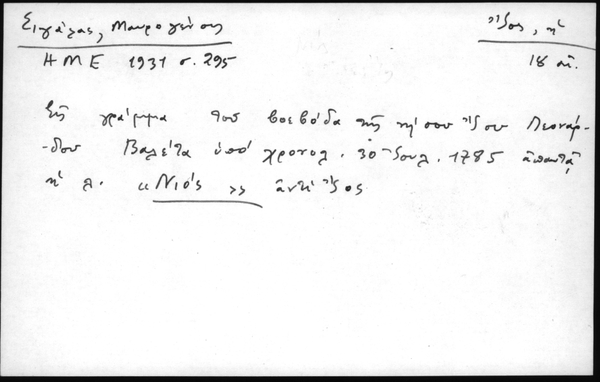 Σιγάλας, Μαυρογένης
Ἴος, ἡ
ΗΜΕ 1931 σ. 295
18 αἰ.
Εἰς γράμμα τοῦ βοεβόδα τῆς νήσου Ἴου Λεονάρ-
-δου Βαλέτα ὑπό χρονολ. 30 Ἰουλ. 1785 ἀπαντᾷ
ἡ λ. «Νιός» ἀντί Ἴος